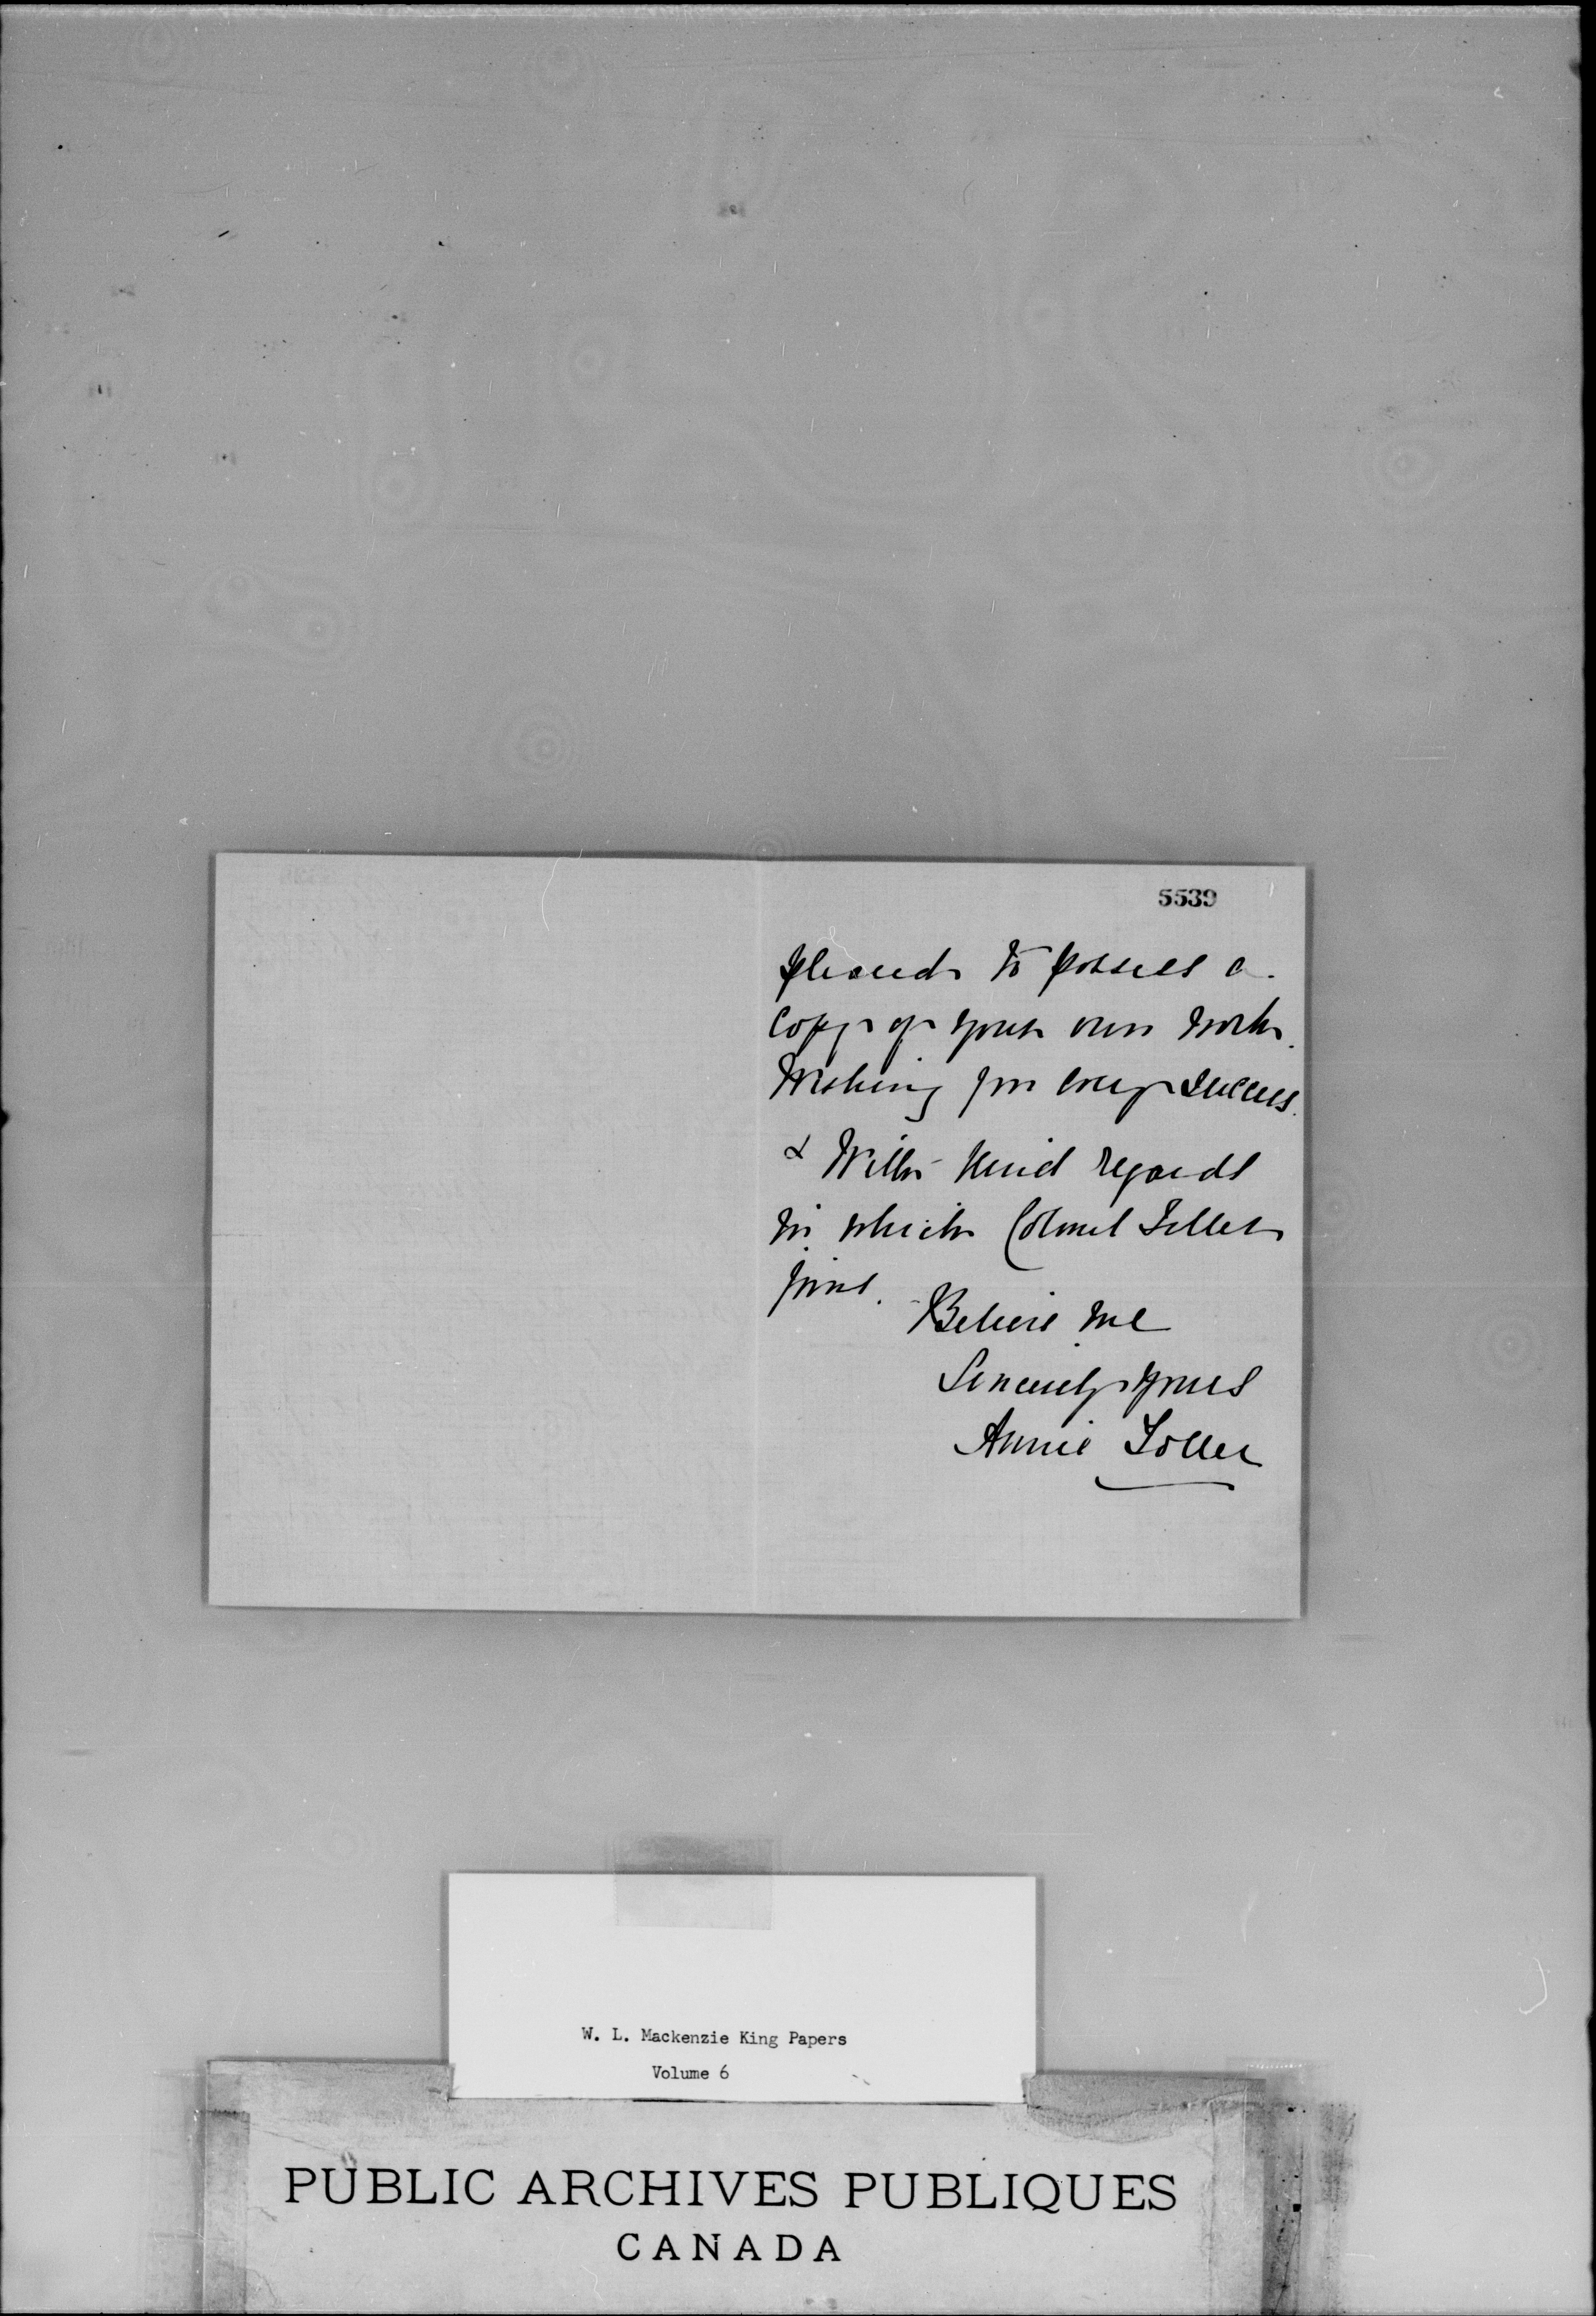 5539
pleased to possess a
copy of your own work.
Wishing you every success.
& With kind regards
in which Colonel Toller
joins.
Believe me
Sincerely yours
Annie Toller
W. L. Mackenzie King Papers
Volume 6
PUBLIC ARCHIVES PUBLIQUES
CANADA